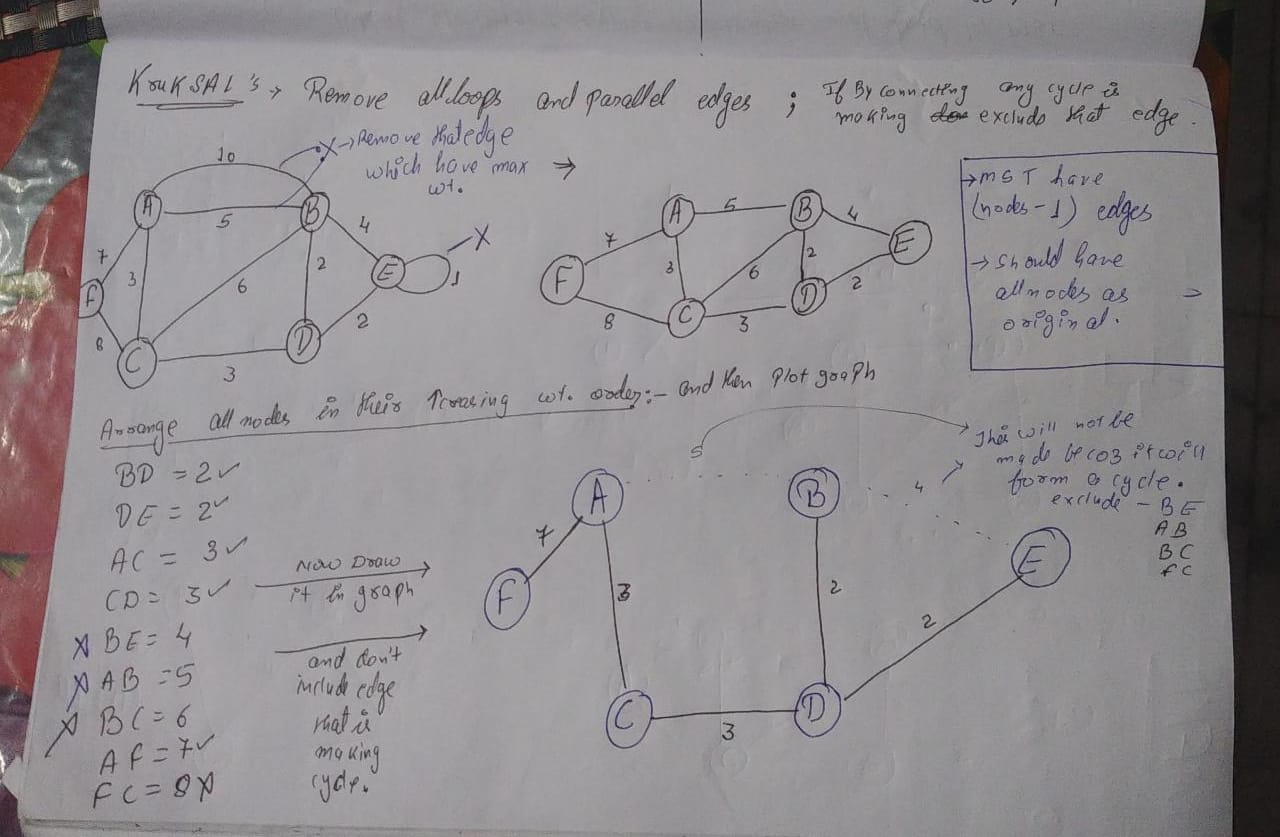 KruKSAL's → Remove all loops and parallel edges ; If By connecting any cycle is
making exclude that edge.
X → Remove that edge
which have max
wt.
⇒
10
A
5
B
4
X
7
3
6
2
E
1
F
8
C
3
D
2
A
5
B
4
E
7
3
6
2
F
D
2
8
C
3
→ MST have
(nodes-1) edges
→ should have
all nodes as
original.
Arrange all nodes in their creasing wt. order:- and then Plot graph
BD = 2✓
DE = 2✓
AC = 3✓
CD = 3✓
X BE = 4
X AB = 5
X BC = 6
AF = 7✓
FC = 8X
Now Draw
it in graph
and don't
include edge
that is
making
cycle.
5
A
B
4
7
F
3
2
E
2
C
3
D
will not be
made becoz it will
form a cycle.
exclude - BE
AB
BC
FC